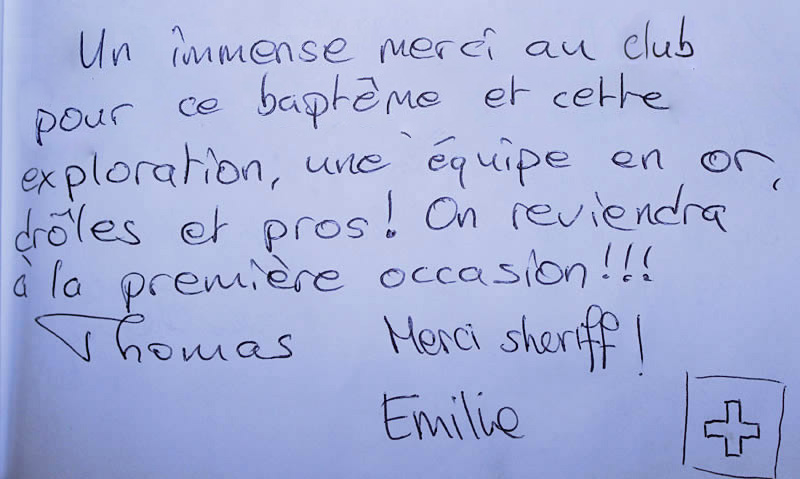 Un immense merci au club
pour ce baptême et cette
exploration, une équipe en or,
drôles et pros! On reviendra
à la première occasion!!!
Thomas
Merci sheriff!
Emilie